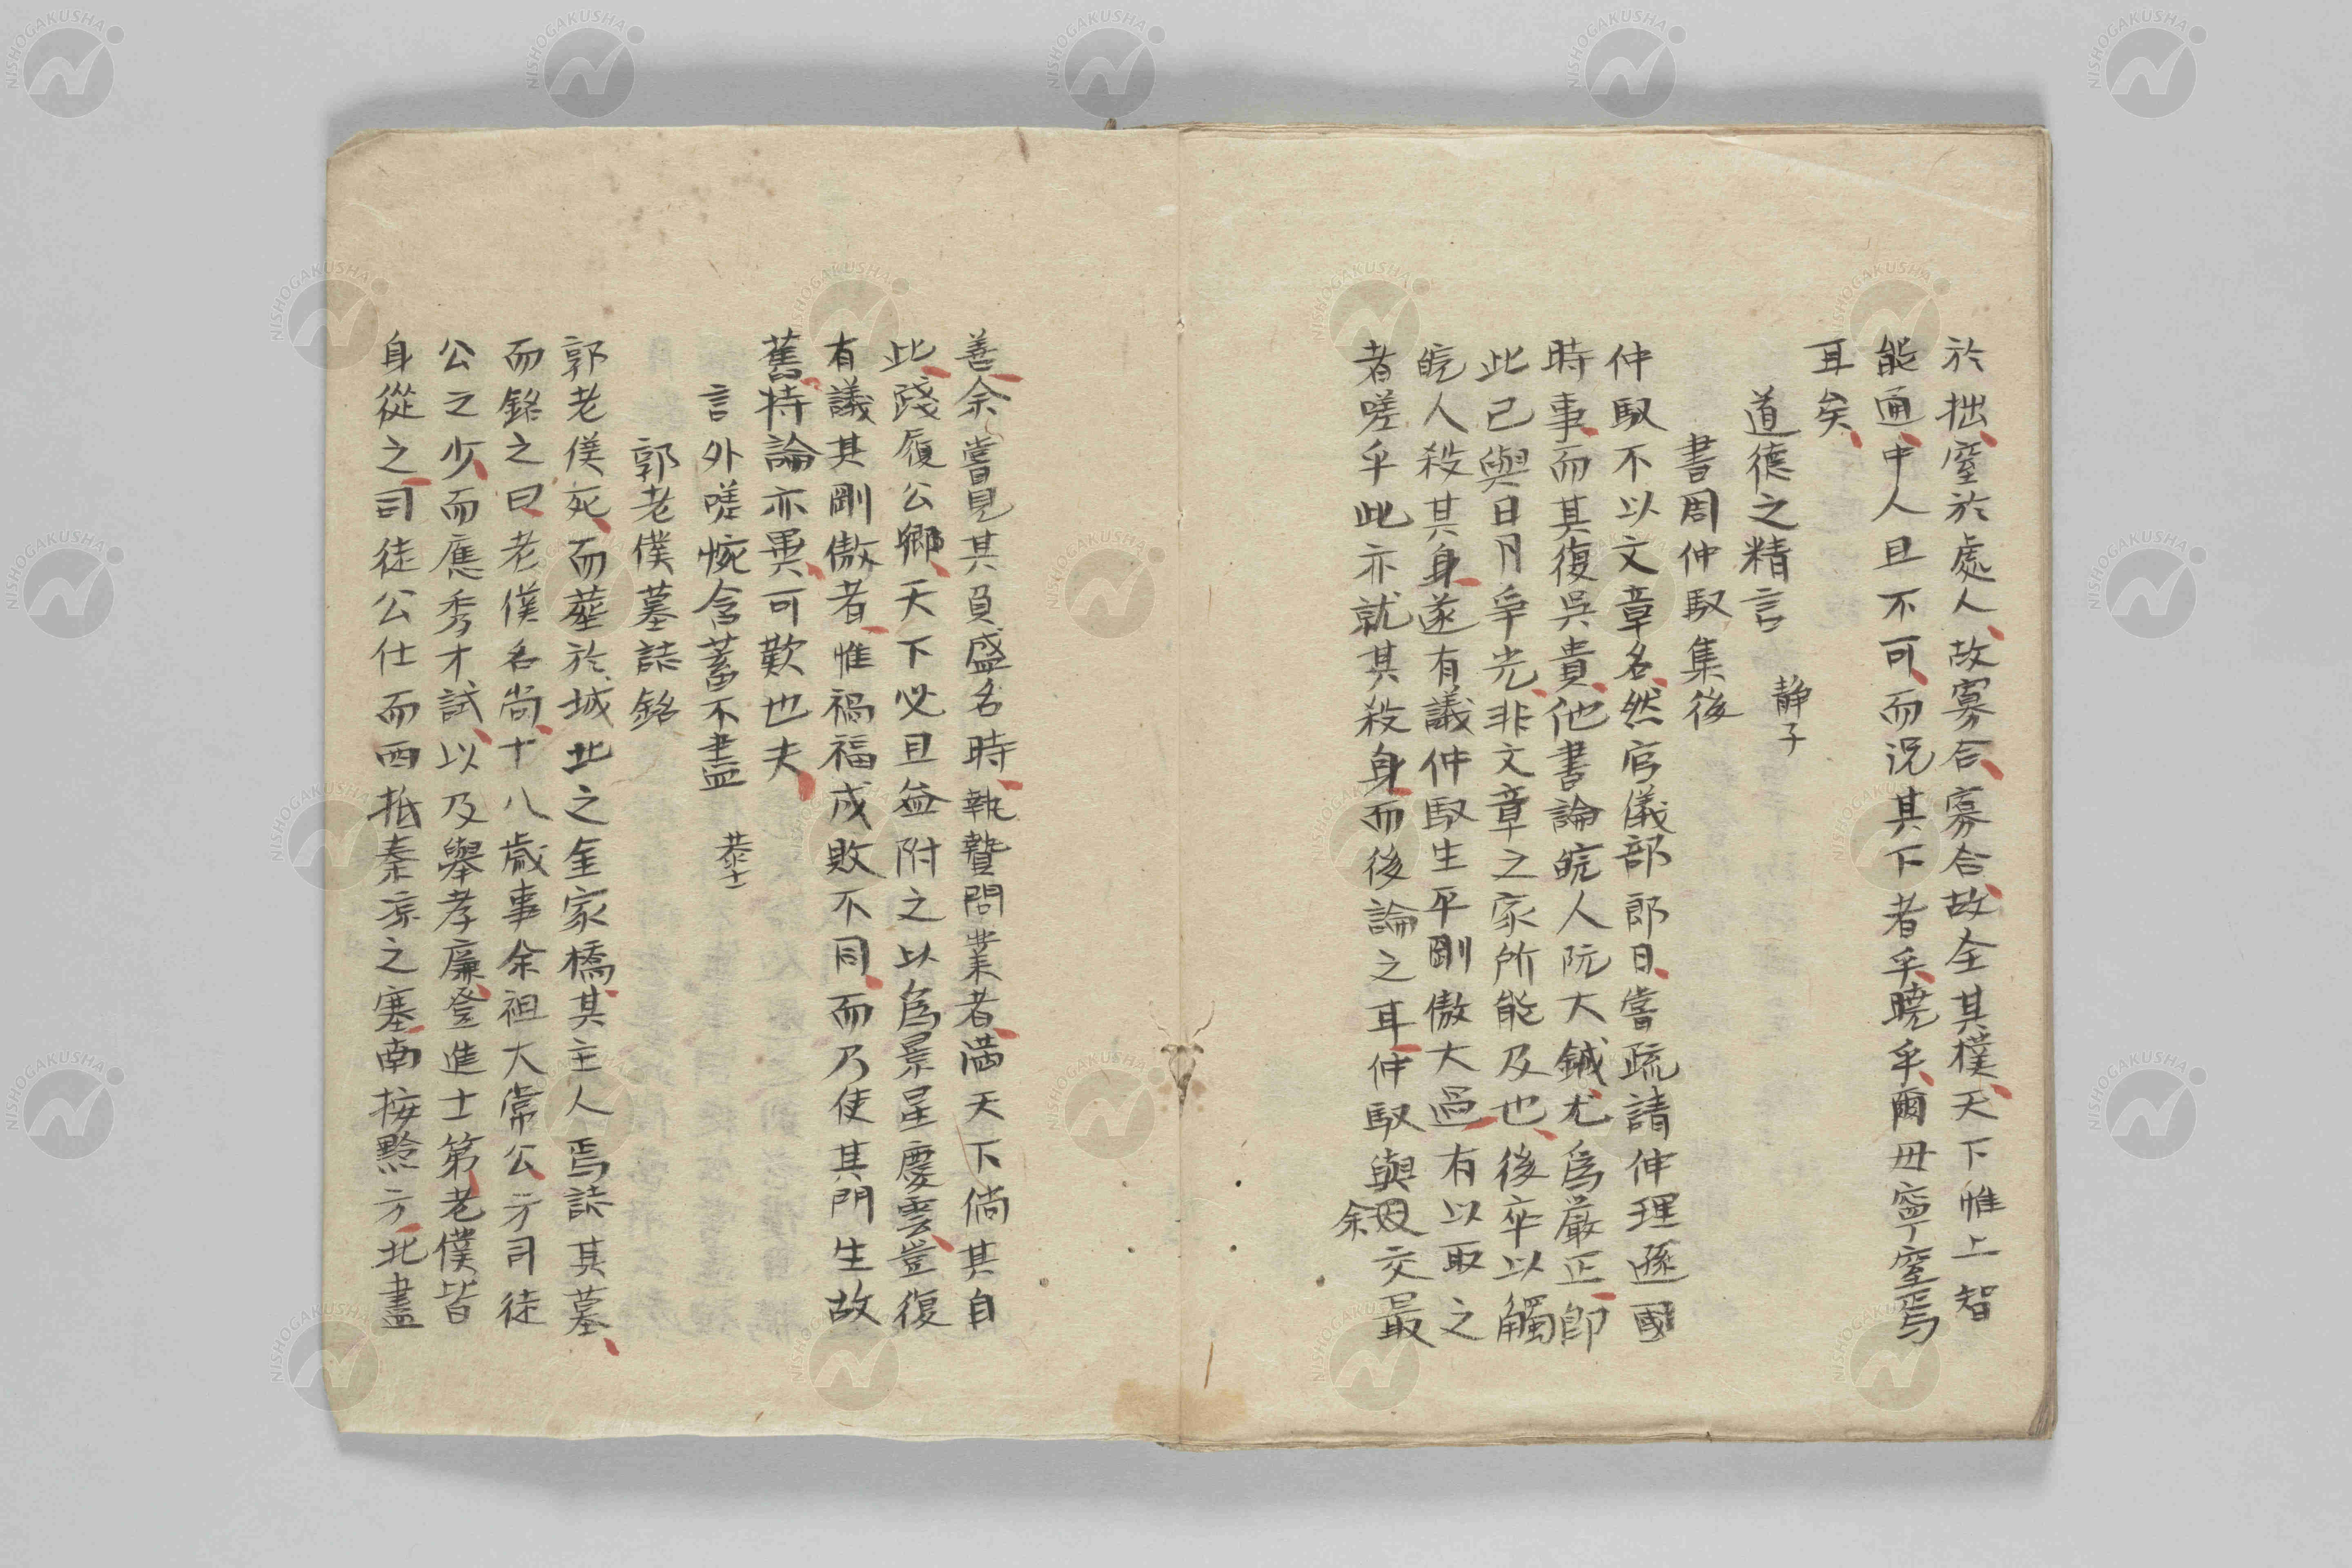 於拙窒於處人故寡合寡合故全其樸天下惟上智
能通中人且不可而況其下者乎曉乎爾毋寧窒焉
耳矣
道德之精言 靜子
書周仲馭集後
仲馭不以文章名然官儀部郎日嘗疏請伸理遜國
時事而其復吳貴他書論皖人阮大鋮尤爲嚴正卽
此已與日月爭光非文章之家所能及也後卒以觸
皖人殺其身遂有議仲馭生平剛傲大過有以取之
者嗟乎此亦就其殺身而後論之耳仲馭與余交最
善余嘗見其負盛名時執贄問業者滿天下倘其自
此踐履公卿天下必且益附之以爲景星慶雲豈復
有議其剛傲者惟禍福成敗不同而乃使其門生故
舊持論亦異可歎也夫
言外嗟惋含蓄不盡 恭士
郭老僕墓誌銘
郭老僕死而葬於城北之金家橋其主人焉誌其墓
而銘之曰老僕名尚十八歲事余祖大常公方司徒
公之少而應秀才試以及舉孝廉登進士第老僕皆
身從之司徒公仕而西抵秦涼之塞南按黔方北盡
NISHOGAKUSHA